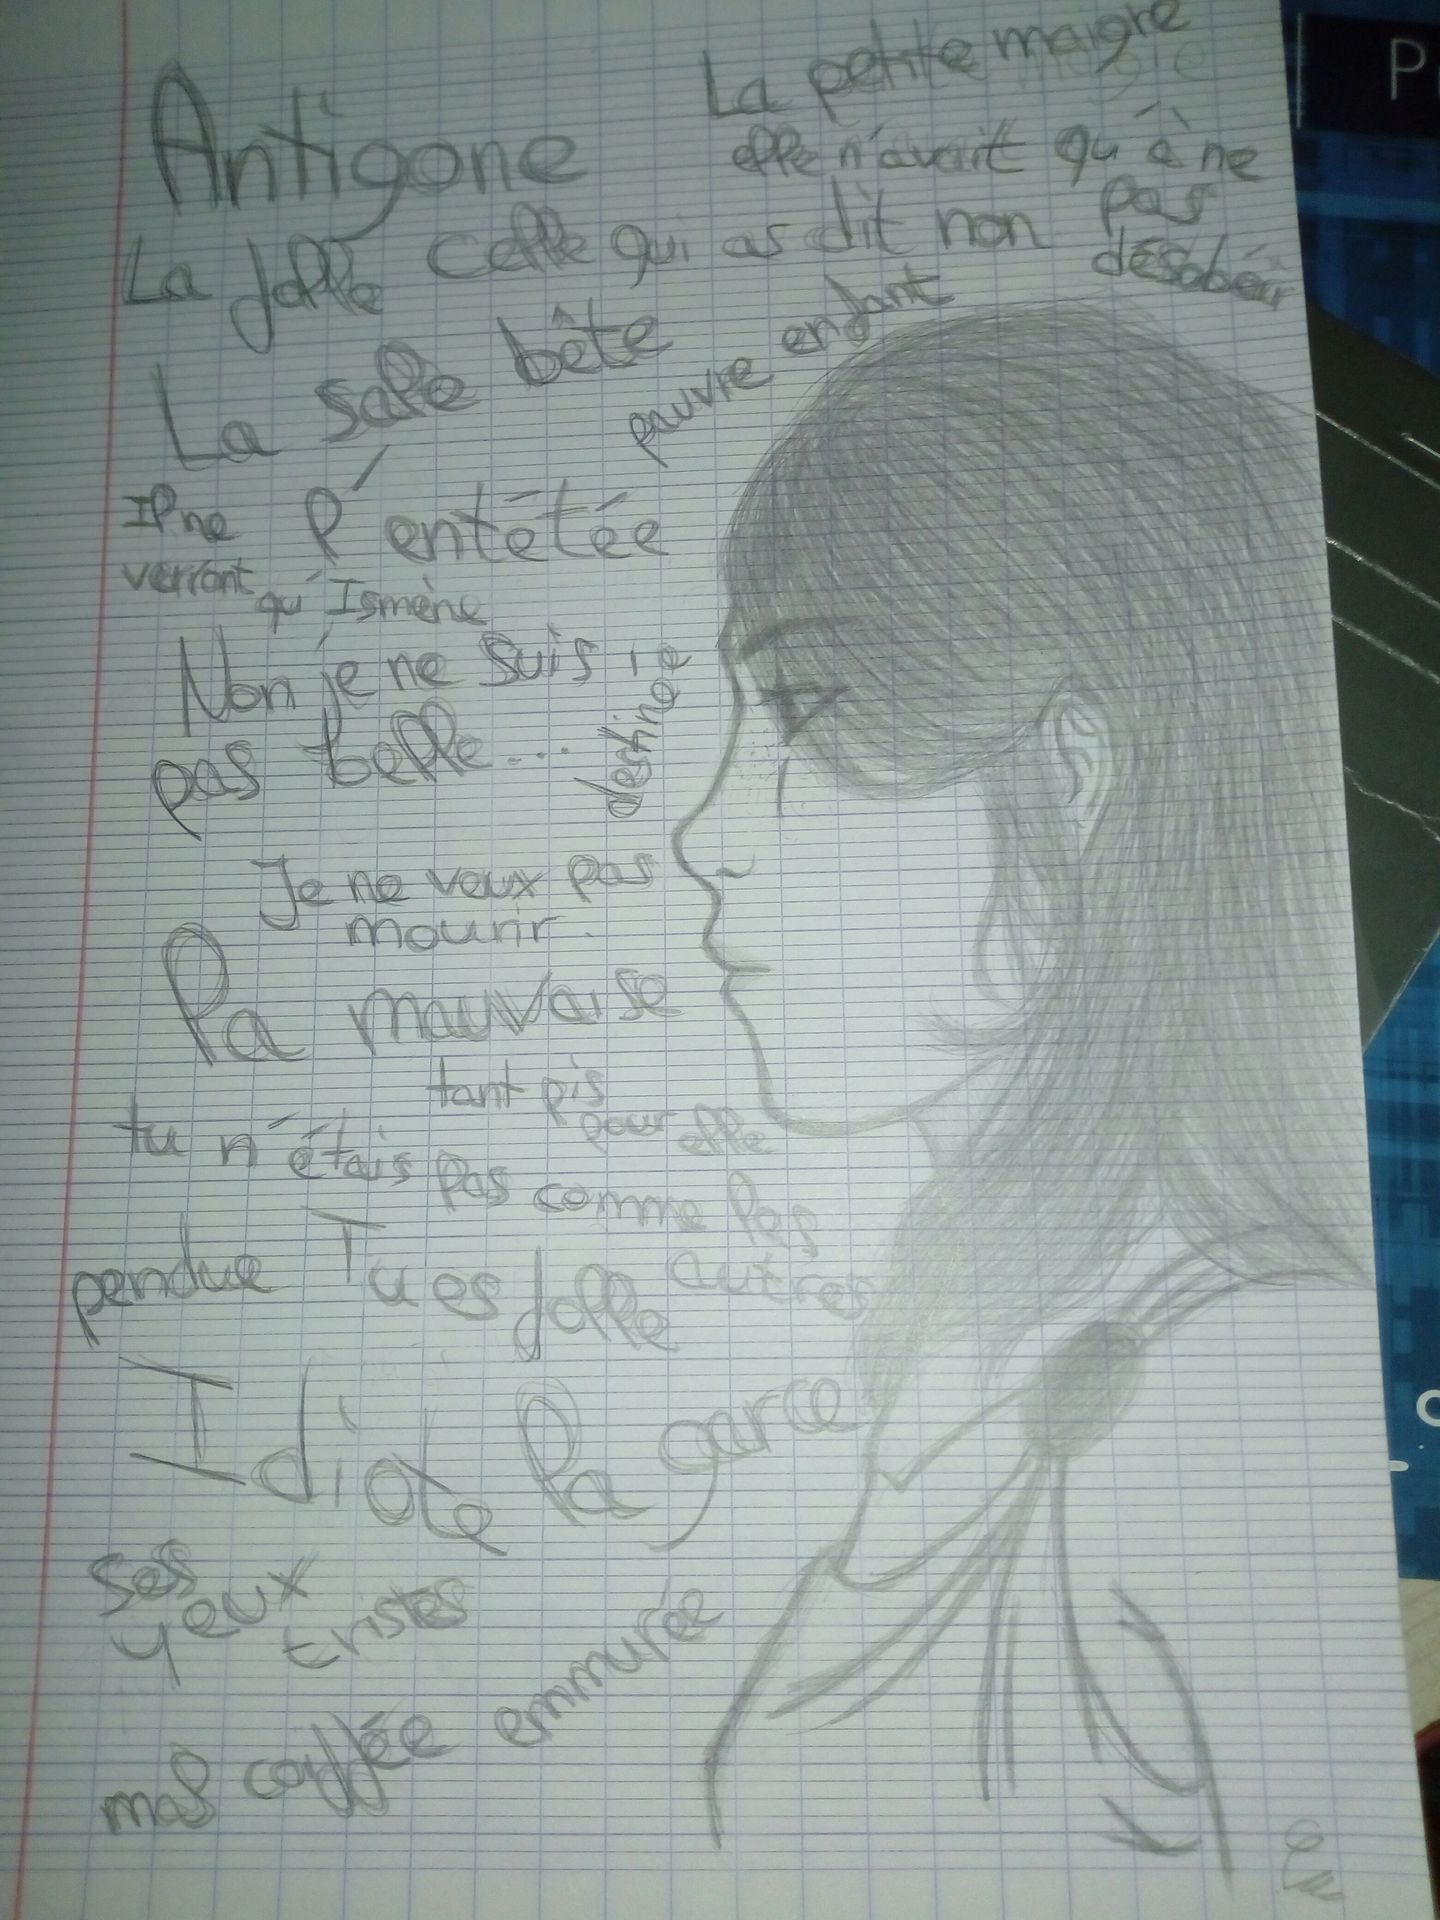 Antigone
La petite maigre
elle n'avait qu'à ne
pas
désobéir
La folle celle qui as dit non
La sale bête
pauvre enfant
l'entêtée
Il ne
verront qu'Ismène
Non je ne suis
pas belle...
destinée
Je ne veux pas
mourir.
la mauvaise
tant pis
pour elle
tu n'étais pas comme les
autres
pendue Tu es folle
Idiote la garce
ses
yeux
tristes
mal coiffée emmurée
P